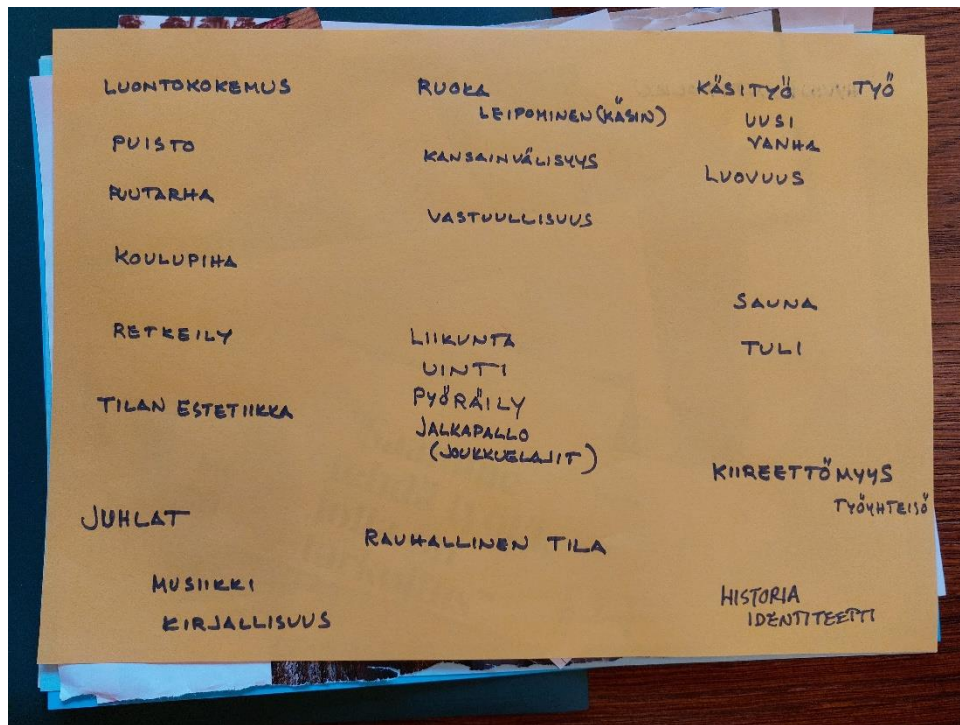 LUONTOKOKEMUS
PUISTO
PUUTARHA
KOULUPIHA
RETKEILY
TILAN ESTETIIKKA
JUHLAT
MUSIIKKI
KIRJALLISUUS
RUOKA
LEIPOMINEN (KÄSIN)
KANSAINVÄLISYYS
VASTUULLISUUS
LIIKUNTA
UINTI
PYÖRÄILY
JALKAPALLO
(JOUKKUELAJIT)
RAUHALLINEN TILA
KÄSITYÖ TYÖ
UUSI
VANHA
LUOVUUS
SAUNA
TULI
KIIREETTÖMYYS
TYÖYHTEISÖ
HISTORIA
IDENTITEETTI